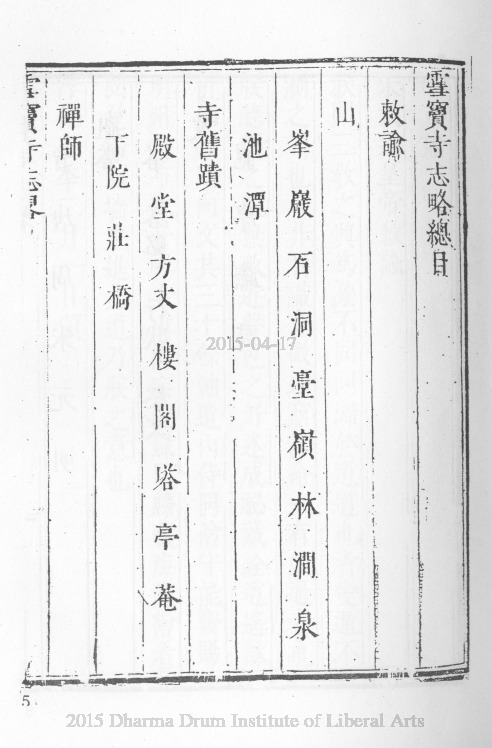 雪竇寺志略總目
敕諭
山
峯巖石洞臺嶺林澗泉
池潭
寺舊蹟
殿堂方丈樓閣塔亭菴
下院莊橋
禪師
雪竇寺志畧
5
2015-04-17
2015 Dharma Drum Institute of Liberal Arts